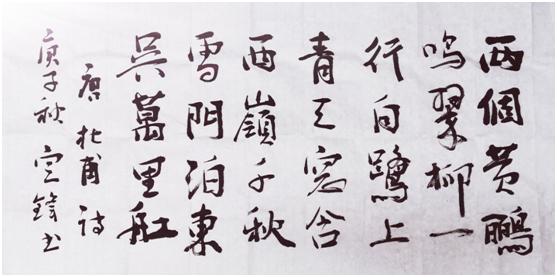 两個黄鸝
鳴翠柳一
行白鷺上
青天窓含
西嶺千秋
雪門泊東
吳萬里船
唐杜甫詩
庚子秋鋒书